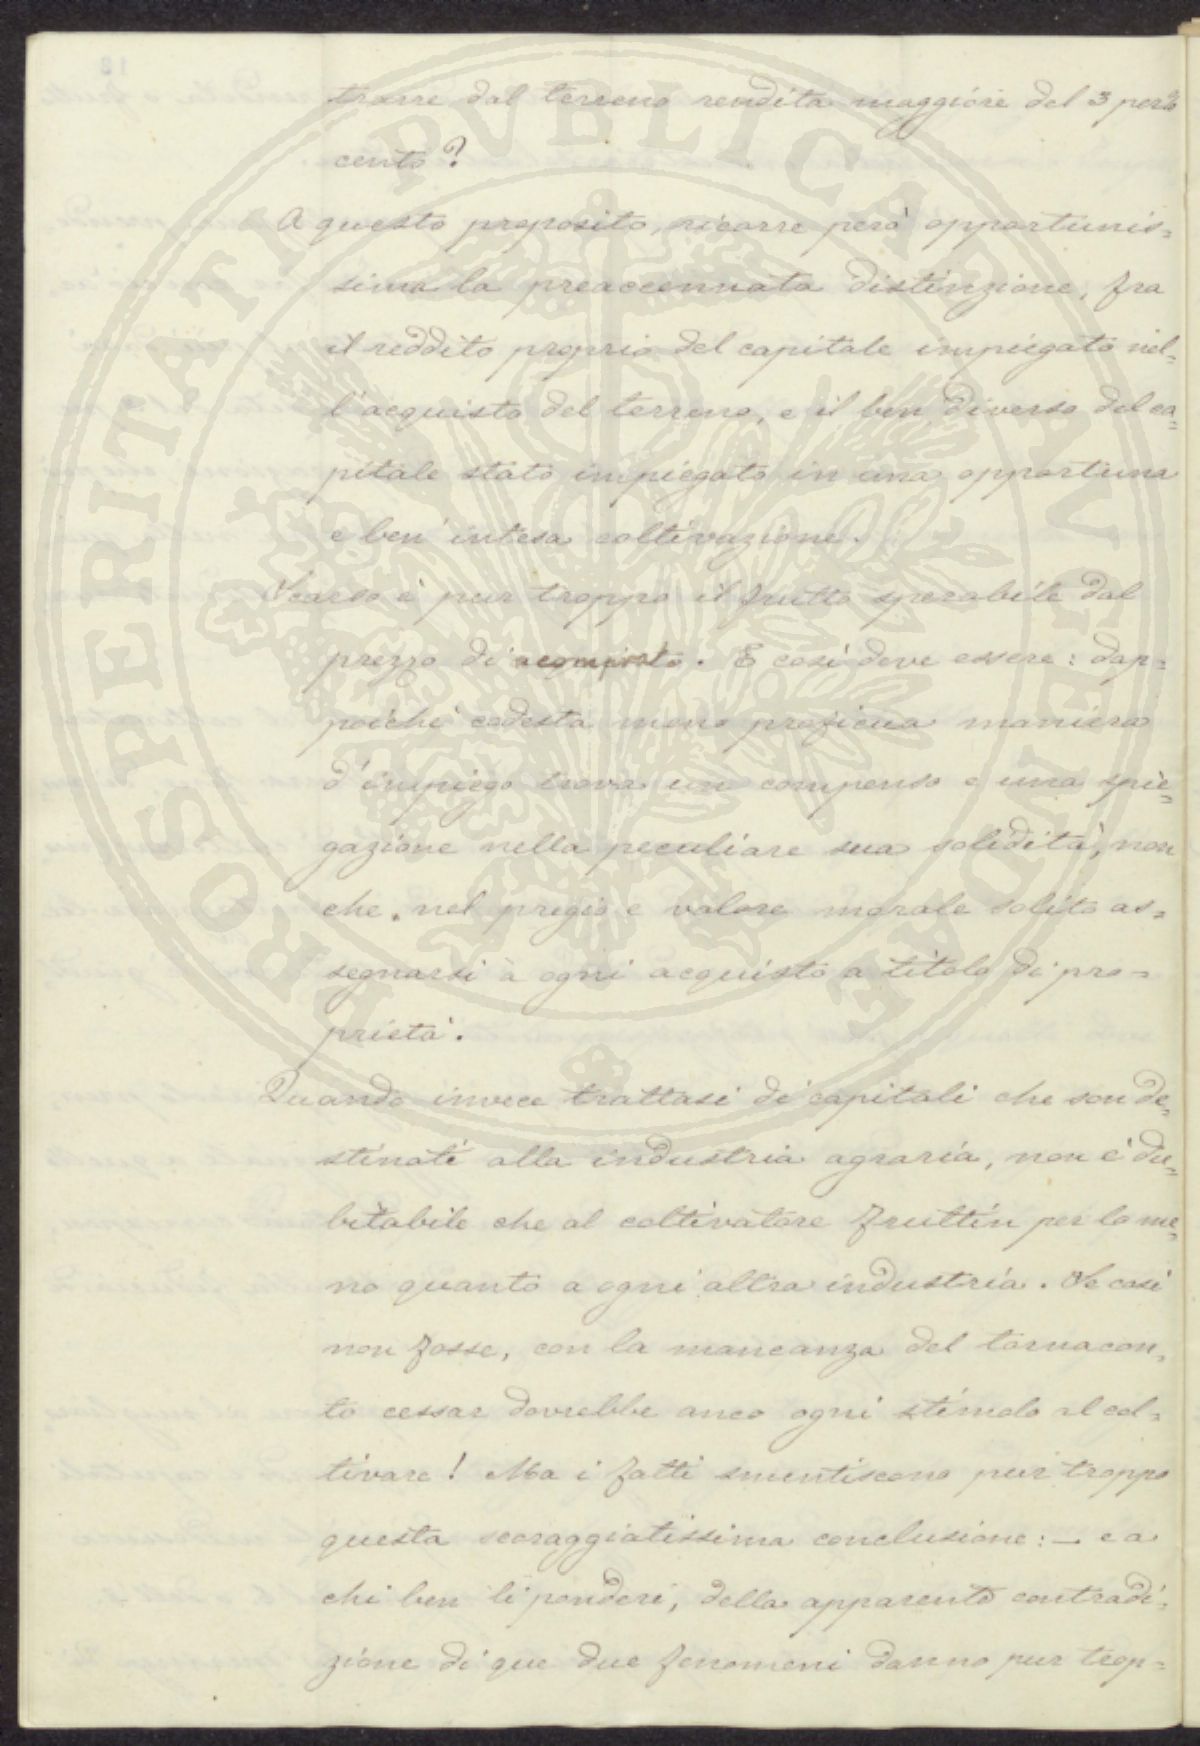 trarre dal terreno rendita maggiore del 3 per%
cento?
A questo proposito, ricorre però opportunis=
sima la preaccennata distinzione, fra
il reddito proprio del capitale impiegato nel=
l'acquisto del terreno, e il ben diverso del ca=
pitale stato impiegato in una opportuna
e ben intesa coltivazione.
Scarso è pur troppo il frutto sperabile dal
prezzo di acquisto. E così deve essere: dap=
poichè codesta meno proficua maniera
d'impiego trova un compenso e una spie=
gazione nella peculiare sua solidità, non
che nel pregio e valore morale solito as=
segnarsi à ogni acquisto a titolo di pro=
prietà.
Quando invece trattasi di capitali che son de=
stinati alla industria agraria, non è du=
bitabile che al coltivatore fruttin per lo me=
no quanto a ogni altra industria. Se così
non fosse, con la mancanza del tornacon=
to cessar dovrebbe anco ogni stimolo al col=
tivare! Ma i fatti smentiscono pur troppo
questa scoraggiatissima conclusione: — e a
chi ben li ponderi, della apparente contradi=
zione di que due fenomeni danno pur trop=
HORVM PROSPERITATI PVBLICAE AVGENDAE